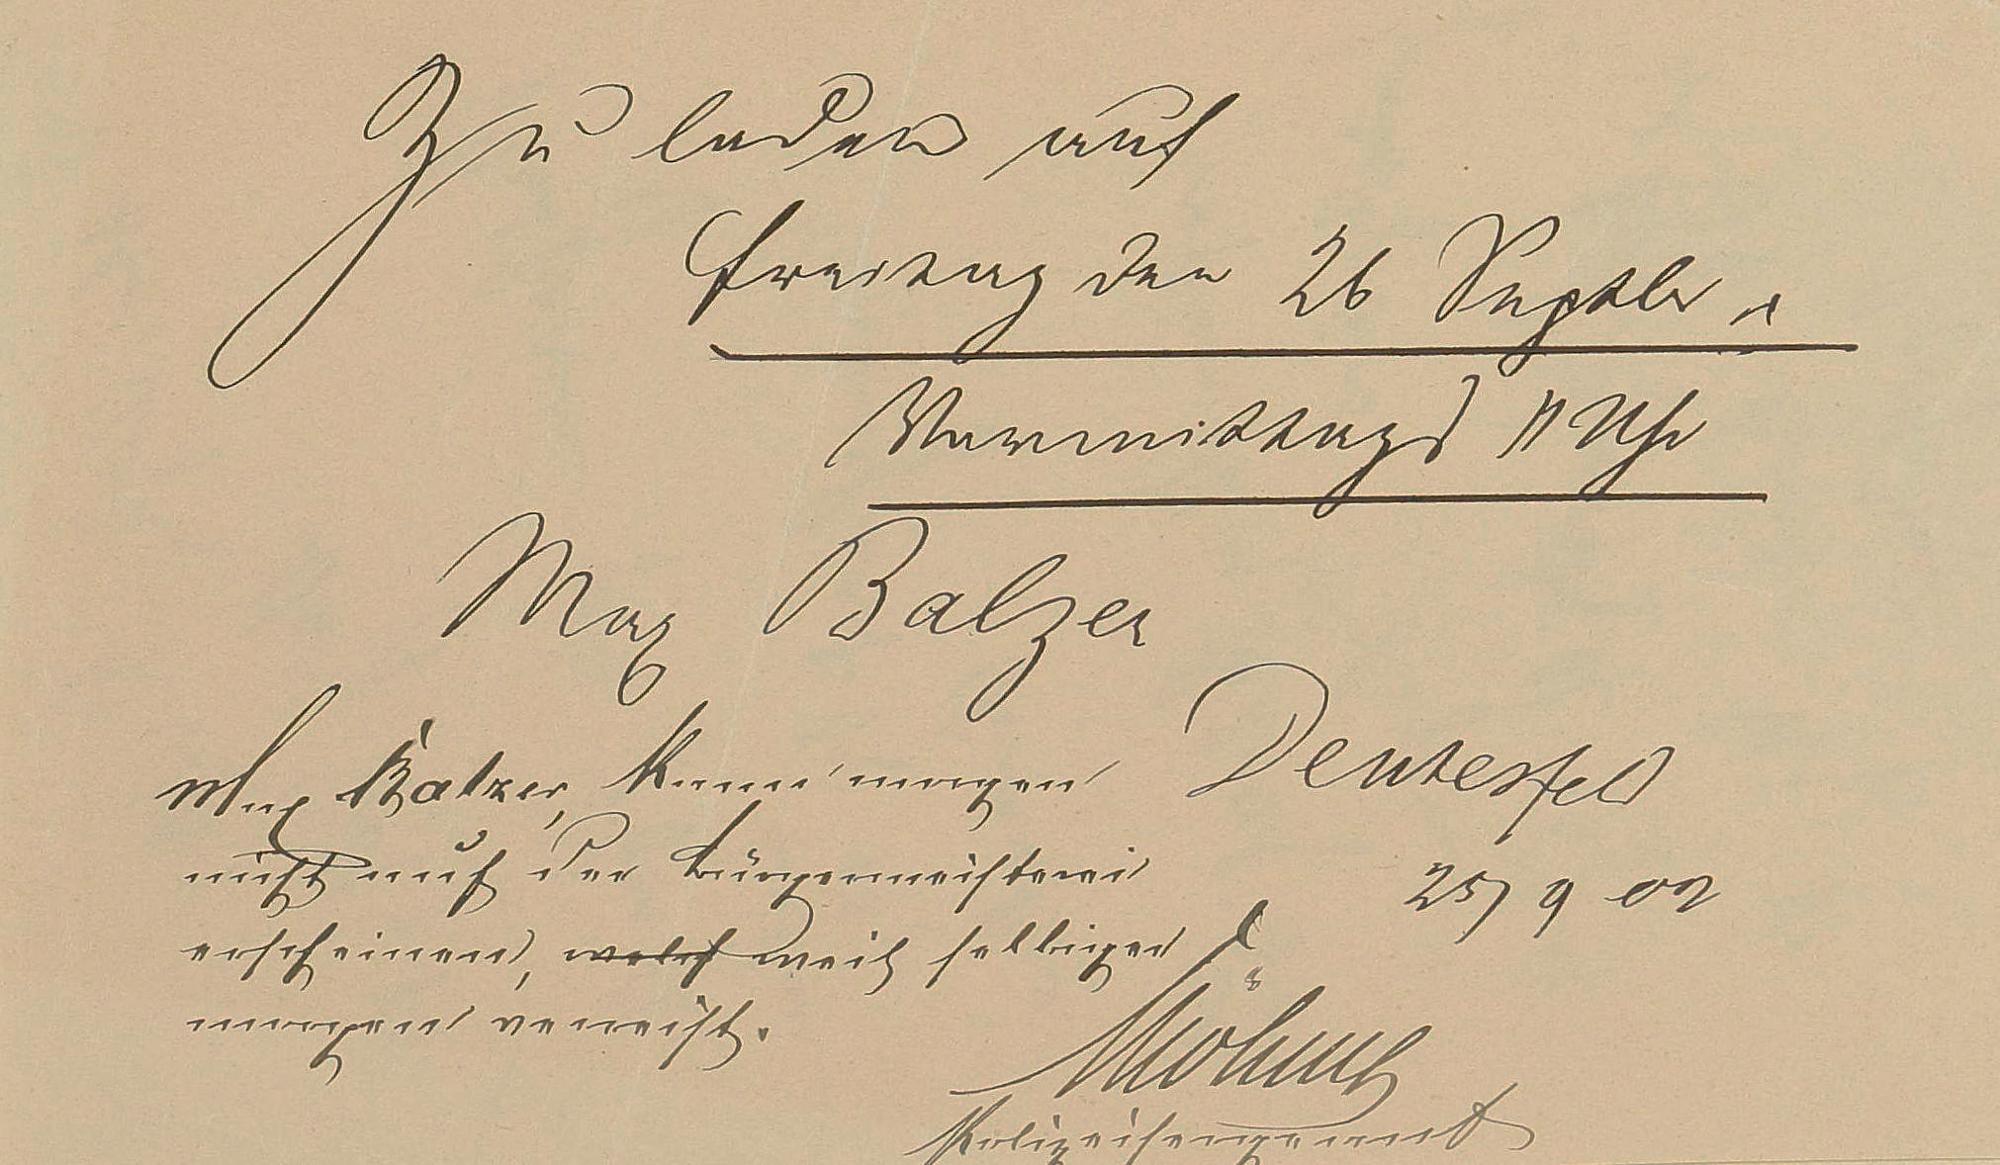 Zu laden auf
Freitag den 26 Septbr
Vormittags 11 Uhr
Max Balzer
Max Balzer, kann morgen
nicht auf der Bürgermeisterei
erscheinen, welch weil selbiger
morgen verreist.
Deutesfeld
25/9 02
Polizeisergeant